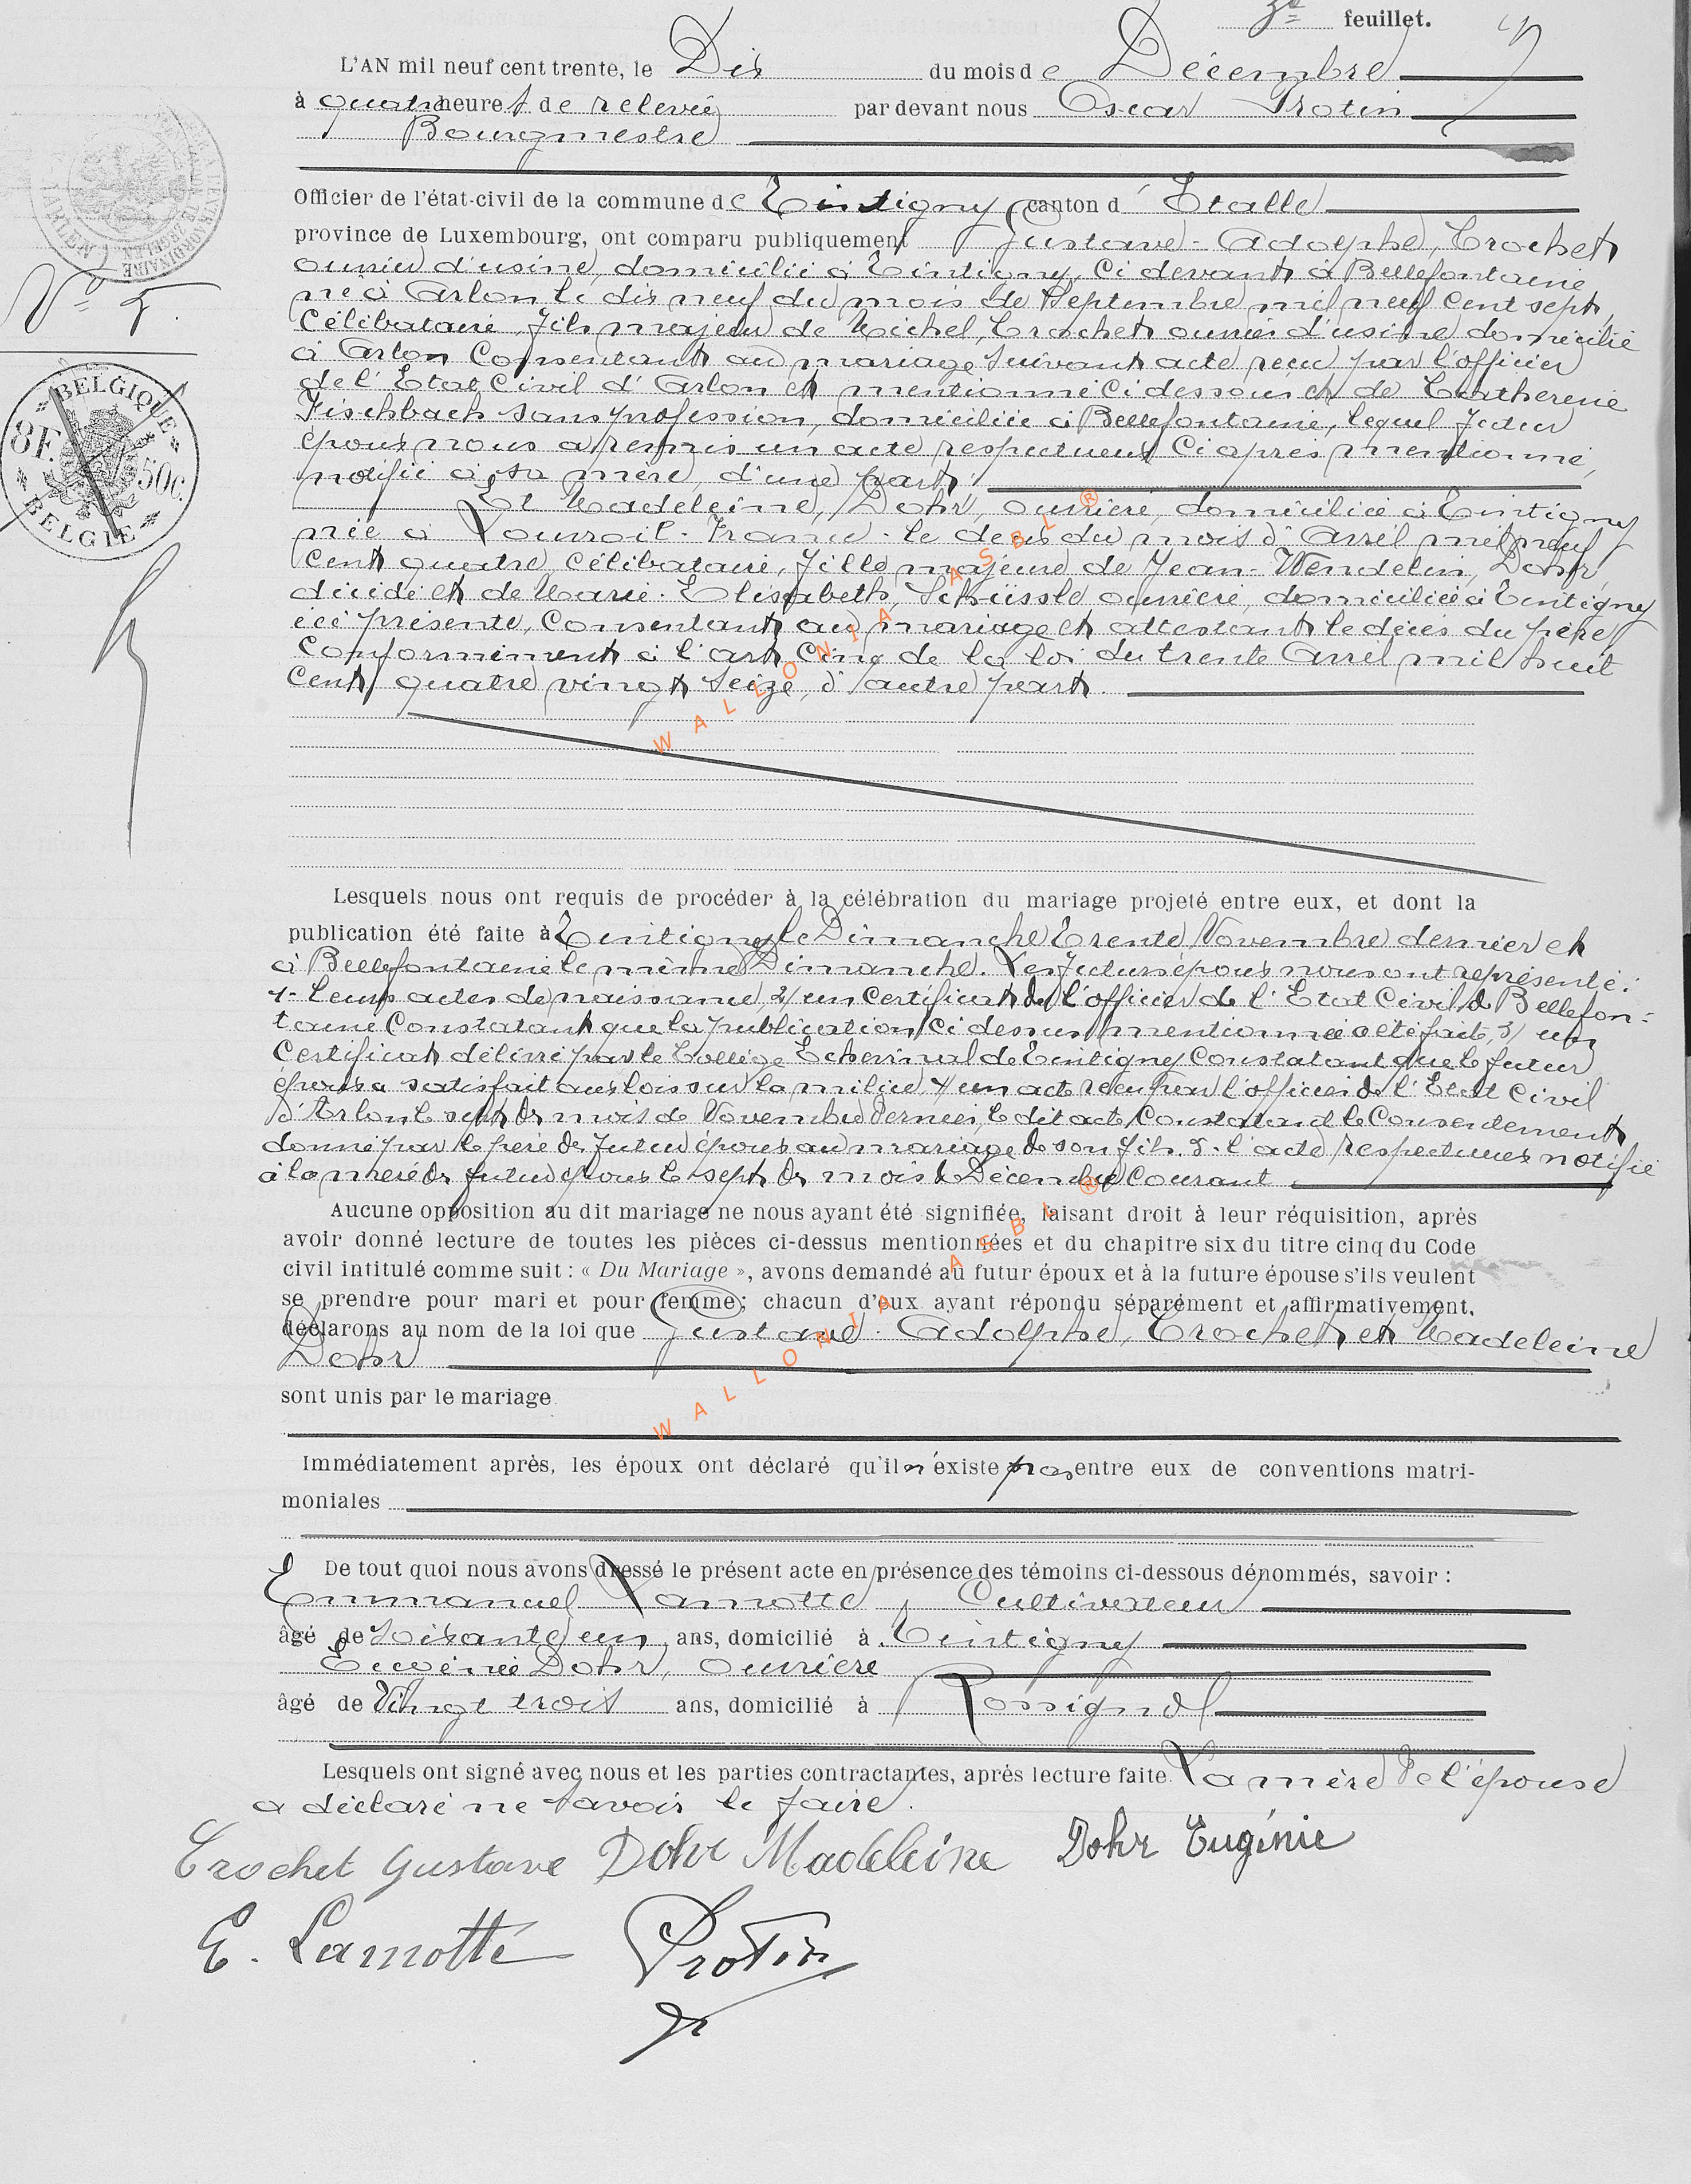 3e feuillet.
L'AN mil neuf cent trente, le Dix du mois de Décembre
à quatre heures de relevée par devant nous Oscar Protin
Bourgmestre
Officier de l'état-civil de la commune de Tintigny canton d' Etalle
province de Luxembourg, ont comparu publiquement Gustave-Adolphe, Crochet
ouvrier d'usine, domicilié à Tintigny, Ci devant à Bellefontaine
né à Arlon le dix neuf du mois de Septembre mil neuf Cent sept,
Célibataire, fils majeur de Michel, Crochet ouvrier d'usine domicilié
à Arlon Consentant au mariage suivant acte reçu par l'officier
de l'Etat Civil d'Arlon et mentionné ci dessous et de Catherine
Fischbach sans profession, domiciliée à Bellefontaine, lequel futur
époux nous a remis un acte respectueux Ci après mentionné,
notifié à sa mère, d'une part.
Et Madeleine, Dohr, ouvrière, domiciliée à Tintigny
née à Louvroil-France-le deux du mois d'Avril mil neuf
cent quatre, Célibataire, fille majeure de Jean-Wendelin, Dohr,
décédé et de Marie-Elisabeth, Schüssle ouvrière, domiciliée à Tintigny
ici présente, Consentant au mariage et attestant le décès du père
Conformément à l'art Cinq de la loi du trente Avril mil huit
Cent quatre vingt seize, d'autre part.
Lesquels nous ont requis de procéder à la célébration du mariage projeté entre eux, et dont la
publication été faite à Tintigny le Dimanche Trente Novembre dernier et
à Bellefontaine le même Dimanche. Les futurs époux nous ont représenté:
1- Leurs actes de naissance 2/ un Certificat de l'officier de l'Etat Civil de Bellefon-
taine Constatant que la publication Ci dessus mentionnée a été faite, 3/ un
Certificat délivré par le Collège Echevinal de Tintigny Constatant que le futur
époux a satisfait aux lois sur la milice, 4/ un acte reçu par l'officier de l'Etat Civil
d'Arlon le sept du mois de Novembre dernier, le dit acte Constatant le Consentement
donné par le père du futur époux au mariage de son fils. 5- l'acte respectueux notifié
à la mère du futur époux le sept du mois de Décembre Courant
Aucune opposition au dit mariage ne nous ayant été signifiée, faisant droit à leur réquisition, après
avoir donné lecture de toutes les pièces ci-dessus mentionnées et du chapitre six du titre cinq du Code
civil intitulé comme suit : « Du Mariage », avons demandé au futur époux et à la future épouse s'ils veulent
se prendre pour mari et pour femme ; chacun d'eux ayant répondu séparément et affirmativement,
déclarons au nom de la loi que Gustave-Adolphe, Crochet et Madeleine
Dohr
sont unis par le mariage
Immédiatement après, les époux ont déclaré qu'il n'existe pas entre eux de conventions matri-
moniales
De tout quoi nous avons dressé le présent acte en présence des témoins ci-dessous dénommés, savoir :
Emmanuel Lamotte, Cultivateur
âgé de soixante un ans, domicilié à Tintigny
Eugénie Dohr, ouvrière
âgé de Vingt trois ans, domicilié à Rossignol
Lesquels ont signé avec nous et les parties contractantes, après lecture faite. La mère de l'épouse
a déclaré ne savoir le faire.
Crochet Gustave Dohr Madeleine Dohr Eugénie
E. Lamotte Protin
N° 5.
BELGIQUE
8F. 50c.
BELGIE
WALLONIA ASBL ®
WALLONIA ASBL ®